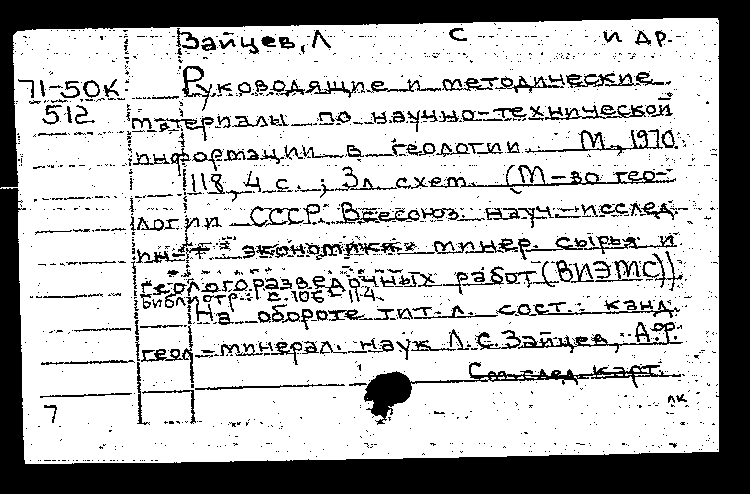 Зайцев, Л С и др.
71-50К Руководящие и методические
512 материалы по научно-технической
информации в геологии. М., 1970
118, 4 с.; 3л. схем. (М-во гео-
логии СССР. Всесоюз. науч.-исслед.
ин-т экономики минер. сырья и
геологоразведочных работ (ВИЭМС)).
Библиогр.: с. 106-114.
На обороте тит. л. сост.: канд.
геол-минерал. наук Л.С. Зайцев, А.Ф.
См. след. карт.
7 лк